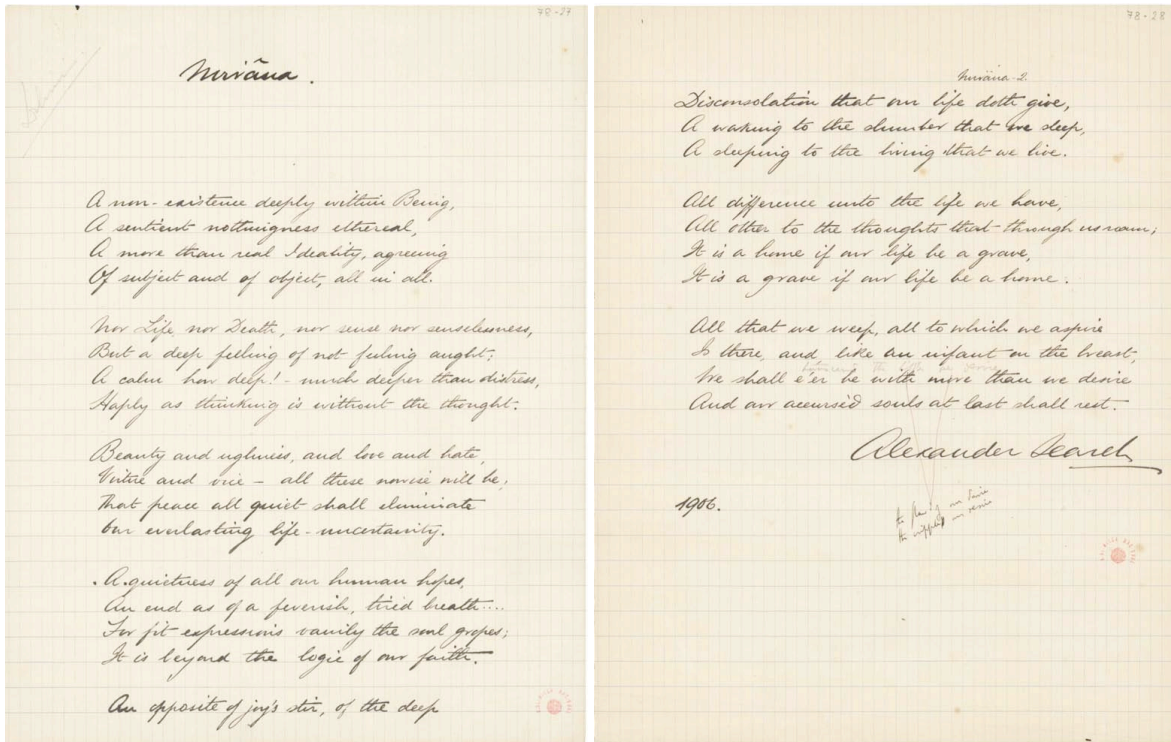 78-27
Nirvâna.
A non-existence deeply within Being,
A sentient nothingness ethereal,
A more than real Ideality, agreeing
Of subject and of object, all in all.
Nor Life, nor Death, nor sense nor senselessness,
But a deep feeling of not feeling aught;
A calm how deep! - much deeper than distress,
Haply as thinking is without the thought.
Beauty and ugliness, and love and hate,
Virtue and vice - all these nowise will be;
That peace all quiet shall eliminate
Our everlasting life-uncertainty.
A quietness of all our human hopes,
An end as of a feverish, tirèd breath....
For fit expressions vainly the soul gropes;
It is beyond the logic of our faith.
An opposite of joy's stir, of the deep
78-28
Nirvâna-2.
Disconsolation that our life doth give,
A waking to the slumber that we sleep,
A sleeping to the living that we live.
All difference unto the life we have,
All other to the thoughts that through us roam;
It is a home if our life be a grave,
It is a grave if our life be a home.
All that we weep, all to which we aspire
Is there, and, like an infant on the breast,
We shall e'er be with more than we desire
And our accursèd souls at last shall rest.
Alexander Search
1906.